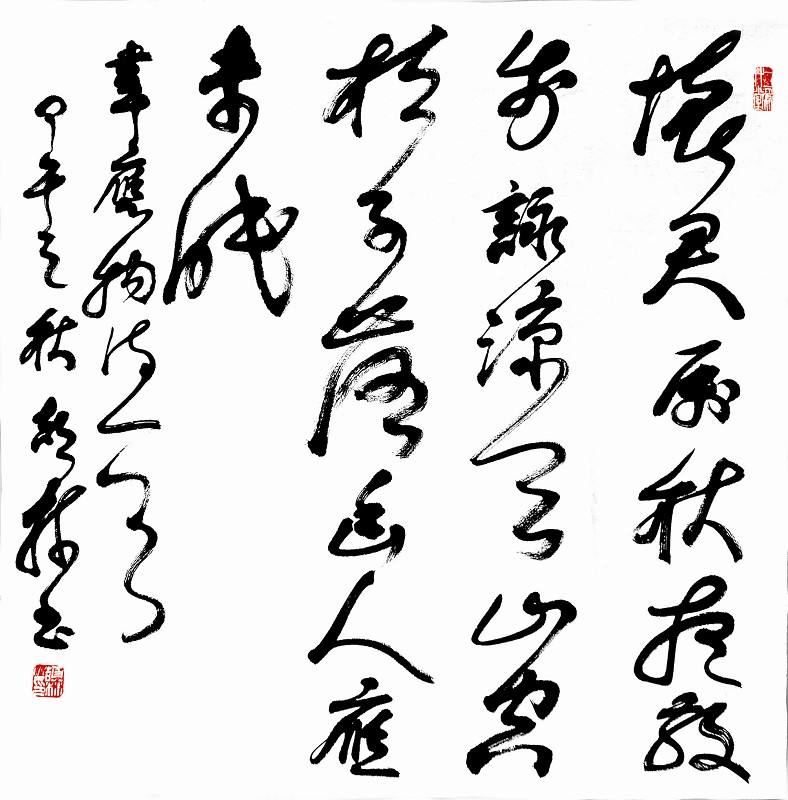 懷君属秋夜散
步詠涼天山空
松子落幽人應
未眠
韋應物诗一首
甲午之秋书